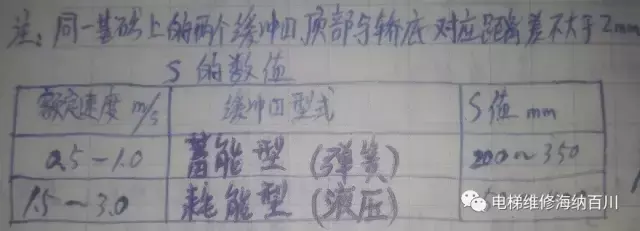 注:同一基础上的两个缓冲口,顶部与轿底对应距离差不大于2mm
S的数值
额定速度 m/s 缓冲口型式 S值 mm
0.5-1.0 蓄能型(弹簧) 200~350
1.5~3.0 耗能型(液压)
电梯维修海纳百川